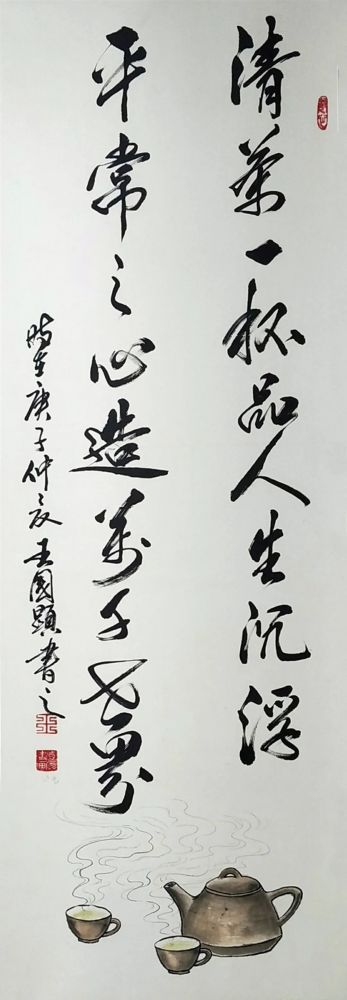 清茶一杯品人生沉浮
平常之心造萬千世界
時在庚子仲夏王國顯書之